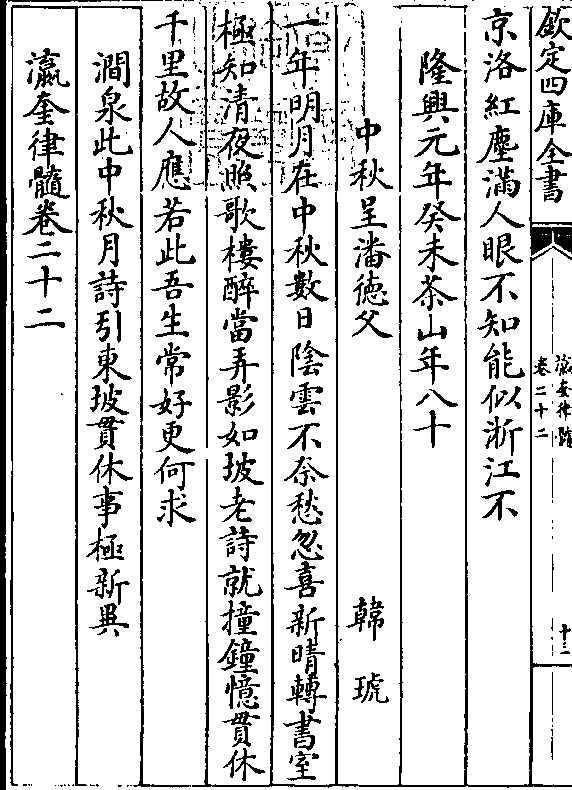 欽定四庫全書
瀛奎律髓
卷二十二
十二
京洛紅塵滿人眼不知能似浙江不
隆興元年癸未茶山年八十
中秋呈潘德父
韓琥
一年明月在中秋數日陰雲不奈愁忽喜新晴轉書室
極知清夜照歌樓醉當弄影如坡老詩就撞鐘憶貫休
千里故人應若此吾生常好更何求
澗泉此中秋月詩引東坡貫休事極新異
瀛奎律髓卷二十二